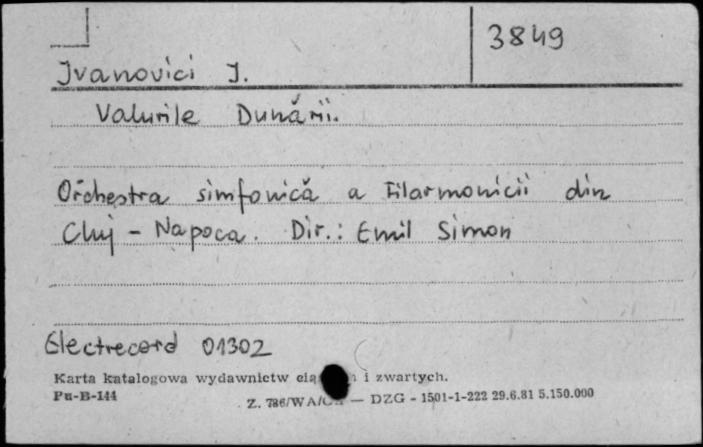 3849
Ivanovici I.
Valurile Dunării.
Orchestra simfonică a Filarmonicii din
Cluj - Napoca. Dir.: Emil Simon
Electrecord 01302
Karta katalogowa wydawnictw i zwartych.
Pu-B-144
Z. 786/WA/ — DZG - 1501-1-222 29.6.81 5.150.000